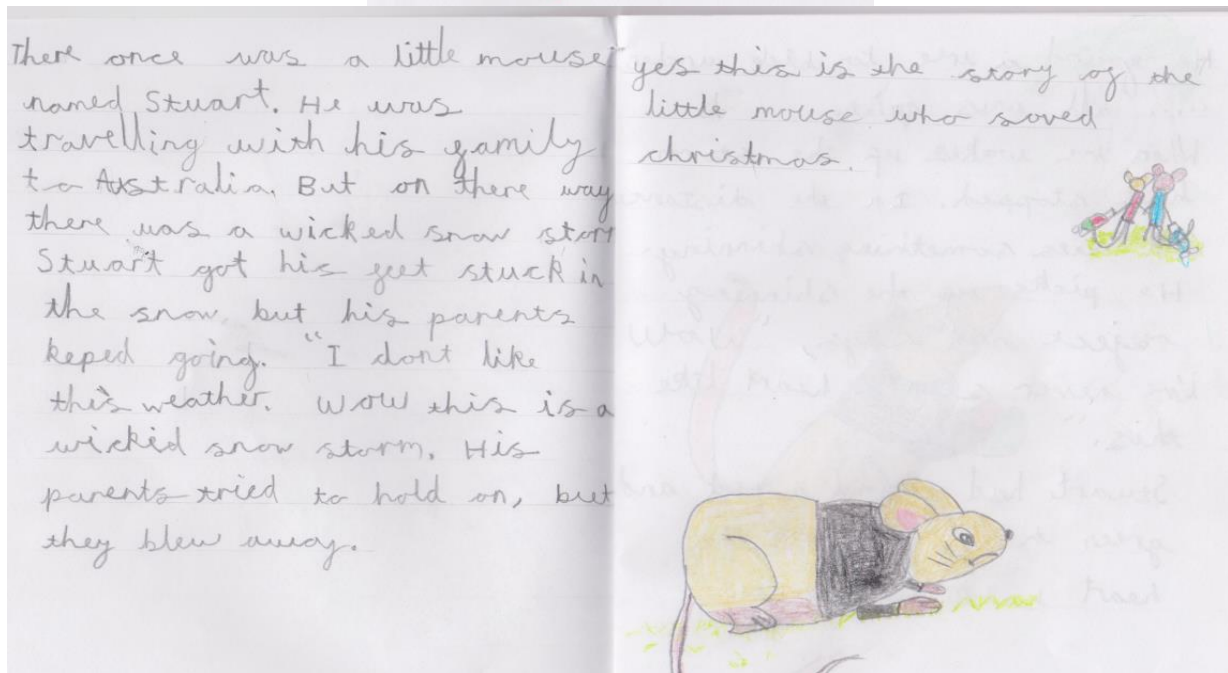 There once was a little mouse
named Stuart. He was
travelling with his family
to Australia. But on there way
there was a wicked snow storm
Stuart got his feet stuck in
the snow, but his parents
keped going. "I dont like
this weather. Wow this is a
wickid snow storm. His
parents tried to hold on, but
they blew away.
yes this is the story of the
little mouse who saved
christmas.